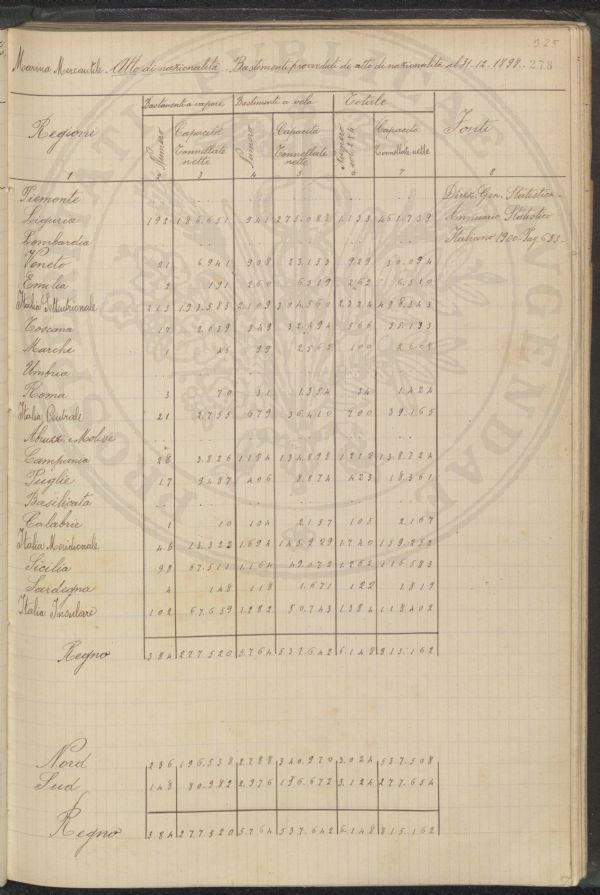 325
Marina Mercantile - Atto di nazionalità - Bastimenti provveduti di atto di nazionalità al 31-12-1898 - 278
Bastimenti a vapore Bastimenti a vela Totale
Regioni Numero Capacità Tonnellate nette Numero Capacità Tonnellate nette Numero col. 2 e 4 Capacità Tonnellate nette Fonti
1 2 3 4 5 6 7 8
Piemonte .. .. .. .. .. .. Direz. Gen. Statistica -
Liguria 192 186.651 941 275.088 1133 461.739 Annuario Statistico
Lombardia .. .. .. .. .. .. Italiano 1900 - Pag 653 -
Veneto 21 6.941 908 23.153 929 30.094
Emilia 2 191 260 6.319 262 6.510
Italia Settentrionale 215 193.783 2.109 304.560 2.324 498.343
Toscana 17 2.639 549 32.494 566 35.133
Marche 1 46 99 2.562 100 2.608
Umbria .. .. .. .. .. ..
Roma 3 70 31 1.354 34 1.424
Italia Centrale 21 2.755 679 36.410 700 39.165
Abruzzi e Molise .. .. .. .. .. ..
Campania 28 3.826 1184 134.898 1212 138.724
Puglie 17 9.487 406 8.874 423 18.361
Basilicata .. .. .. .. .. ..
Calabrie 1 10 104 2.157 105 2.167
Italia Meridionale 46 13.323 1.694 145.929 1.740 159.252
Sicilia 98 67.511 1.164 49.072 1.262 116.583
Sardegna 4 148 118 1.671 122 1.819
Italia Insulare 102 67.659 1282 50.743 1384 118.402
Regno 384 277.520 5.764 537.642 6.148 815.162
Nord 236 196.538 2.788 340.970 3.024 537.508
Sud 148 80.982 2.976 196.672 3.124 277.654
Regno 384 277.520 5.764 537.642 6.148 815.162
PUBLICAE AUGENDAE PROSPERITATI